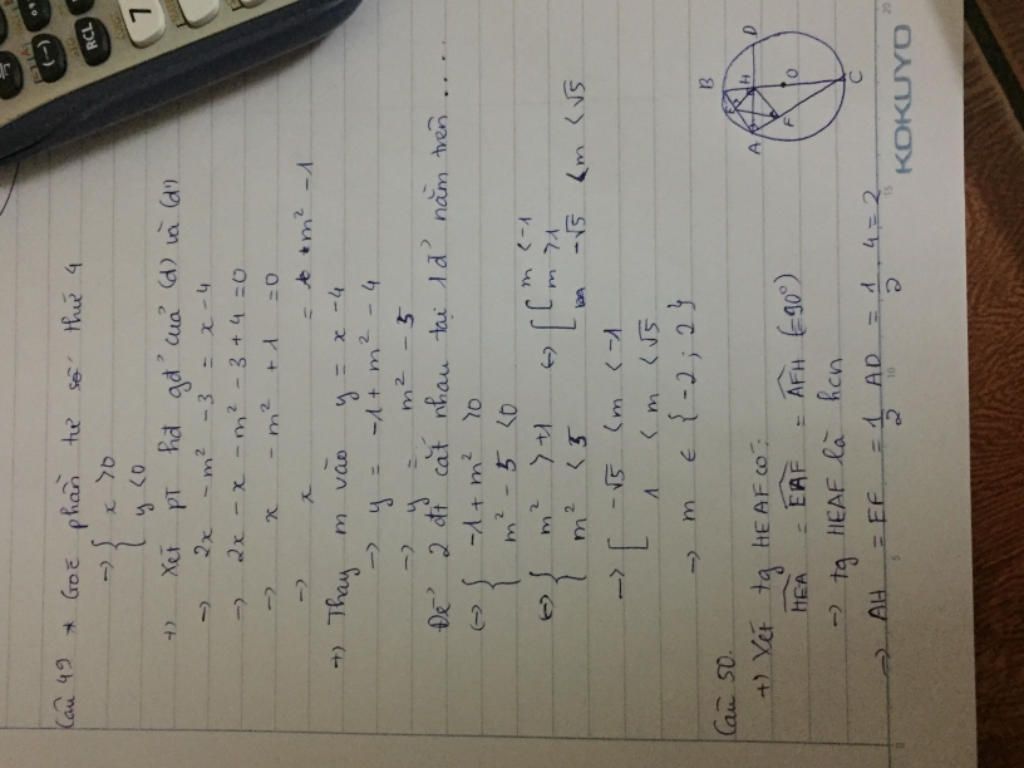 Câu 49 * Góc phần tư số thứ 4
→ { x > 0
y < 0
+) Xét pt hđ gđ' của (d) và (d')
→ 2x - m² - 3 = x - 4
→ 2x - x - m² - 3 + 4 = 0
→ x - m² + 1 = 0
→ x = m² - 1
+) Thay m vào y = x - 4
→ y = -1 + m² - 4
→ y = m² - 5
Để 2 đt cắt nhau tại 1đ' nằm trên ....
(→ { -1 + m² > 0
m² - 5 < 0
⇔ { m² > +1 ⇔ [ m < -1
m > 1
m² < 5 -√5 < m < √5
→ [ -√5 < m < -1
1 < m < √5
→ m ∈ { -2 ; 2 }
Câu 50.
+) Xét tg HEAF có:
HEA = EAF = AFH (=90°)
→ tg HEAF là hcn
⇒ AH = EF = 1/2 AD = 1/2 . 4 = 2
A
B
H
D
F
O
C
KOKUYO
5
10
15
20
RCL
(-)
7